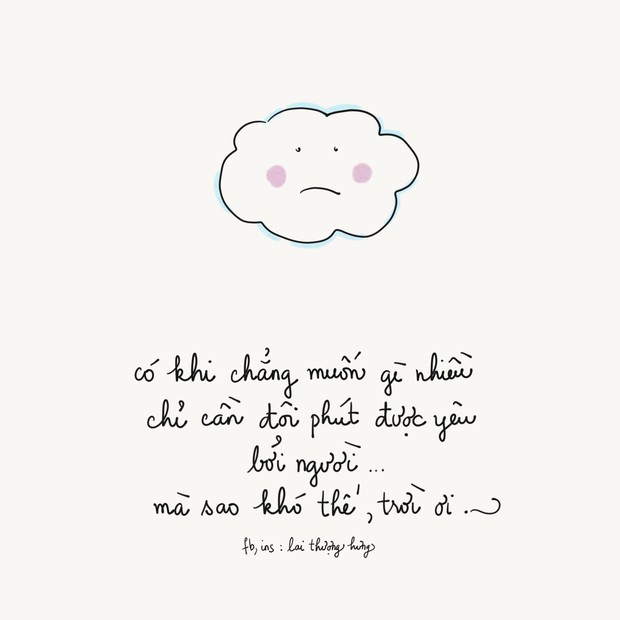 có khi chẳng muốn gì nhiều
chỉ cần đôi phút được yêu
bởi người ...
mà sao khó thế, trời ơi .
fb, ins : lai thượng hưng